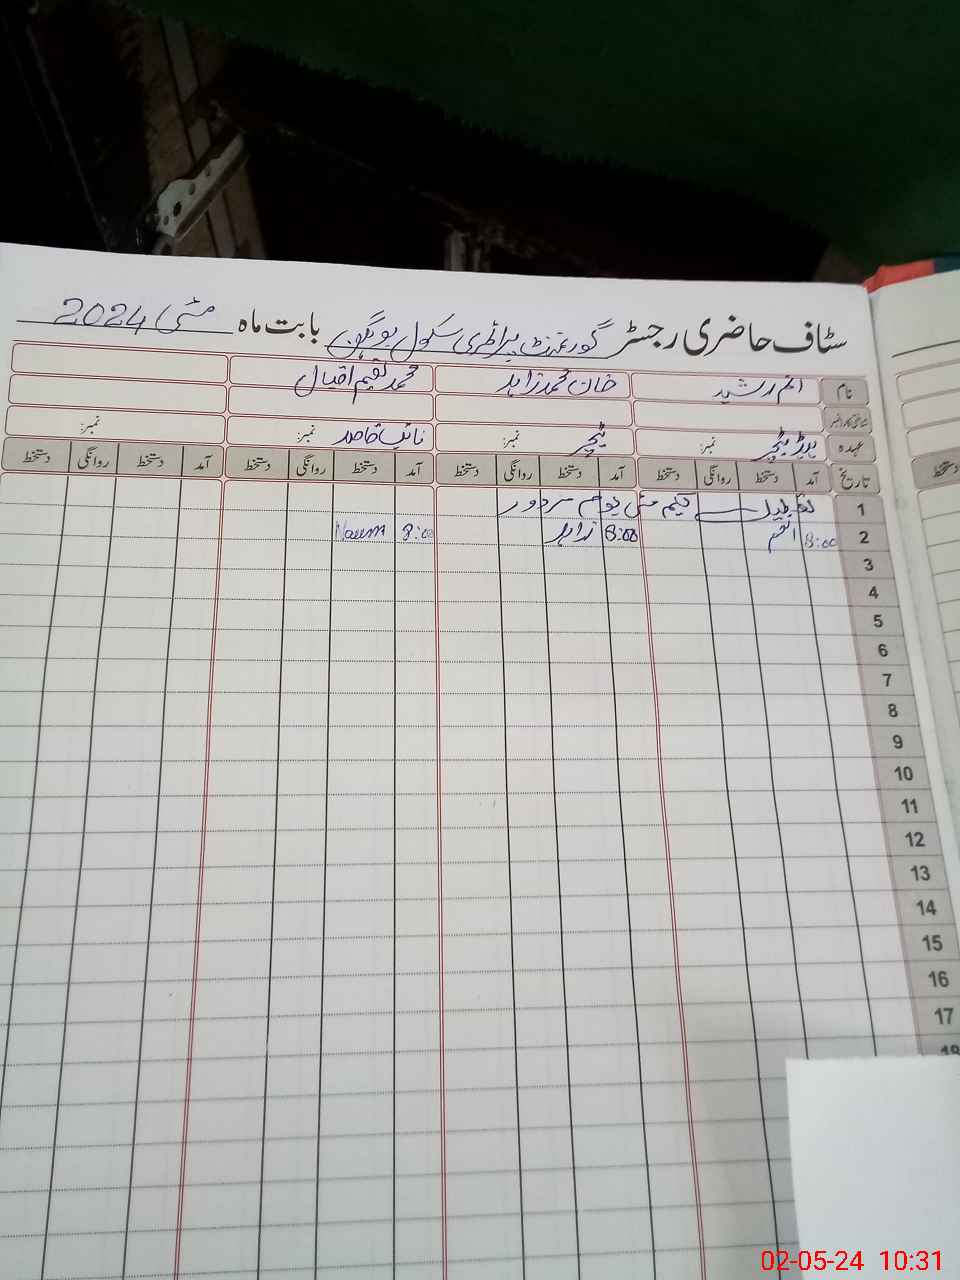 سٹاف حاضری رجسٹر گورنمنٹ پرائمری سکول بابت ماہ مئی 2024
نام خان محمد زاہد محمد نعیم اقبال
عہدہ ہیڈ ٹیچر نمبر: ٹیچر نمبر: نائب قاصد نمبر: نمبر:
تاریخ آمد دستخط روانگی دستخط آمد دستخط روانگی دستخط آمد دستخط روانگی دستخط آمد دستخط روانگی دستخط
1 تعطیل یکم مئی یوم مزدور
2 8:00 8:00 زاہد 8:00 Naeem
3
4
5
6
7
8
9
10
11
12
13
14
15
16
17
18
دستخط
02-05-24 10:31